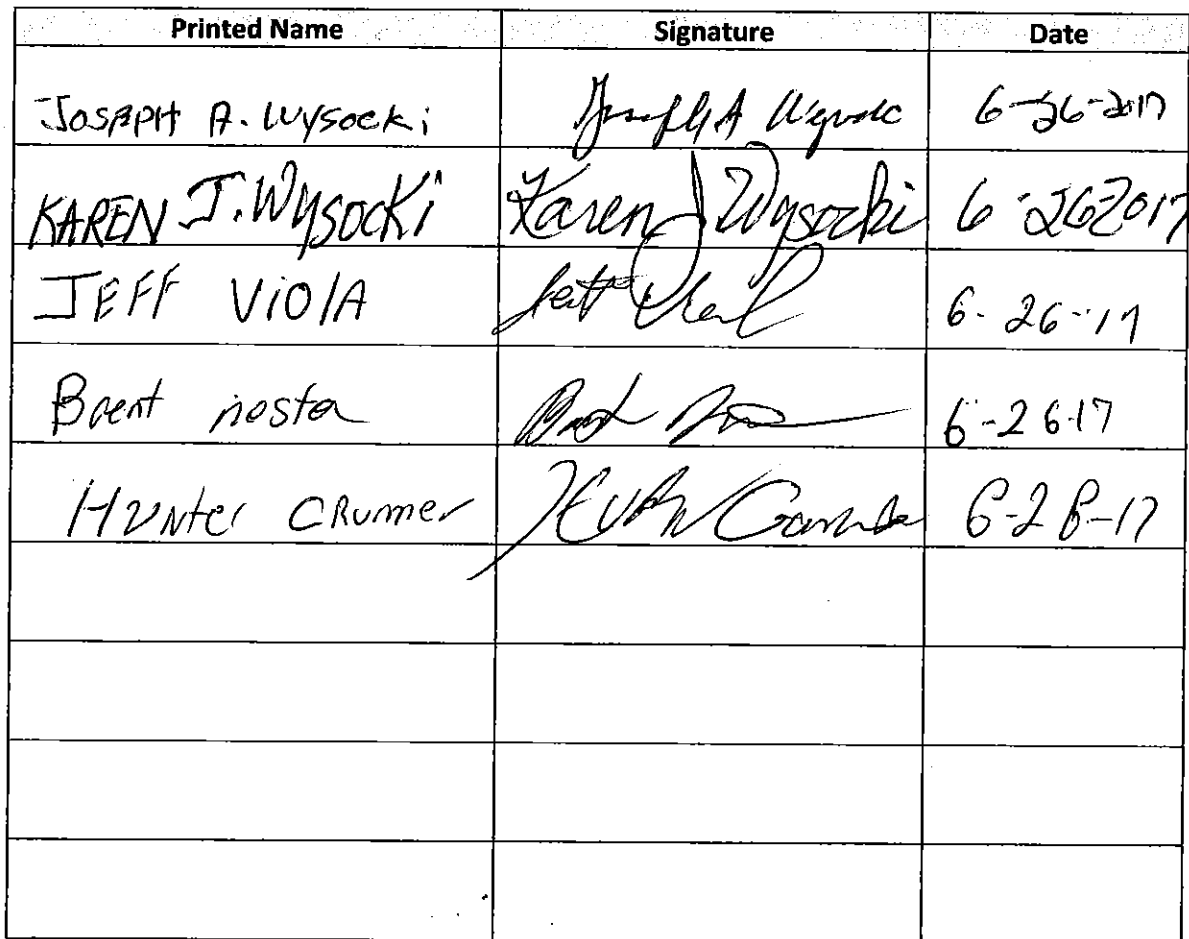 Printed Name Signature Date
JosepH A. Wysocki Joseph A Wysocki 6-26-2017
KAREN J. WysocKi Karen J Wysocki 6-26-2017
JEFF ViolA Jeff 6-26-17
Brent nesta 6-26-17
HUNter CRummer 6-28-17